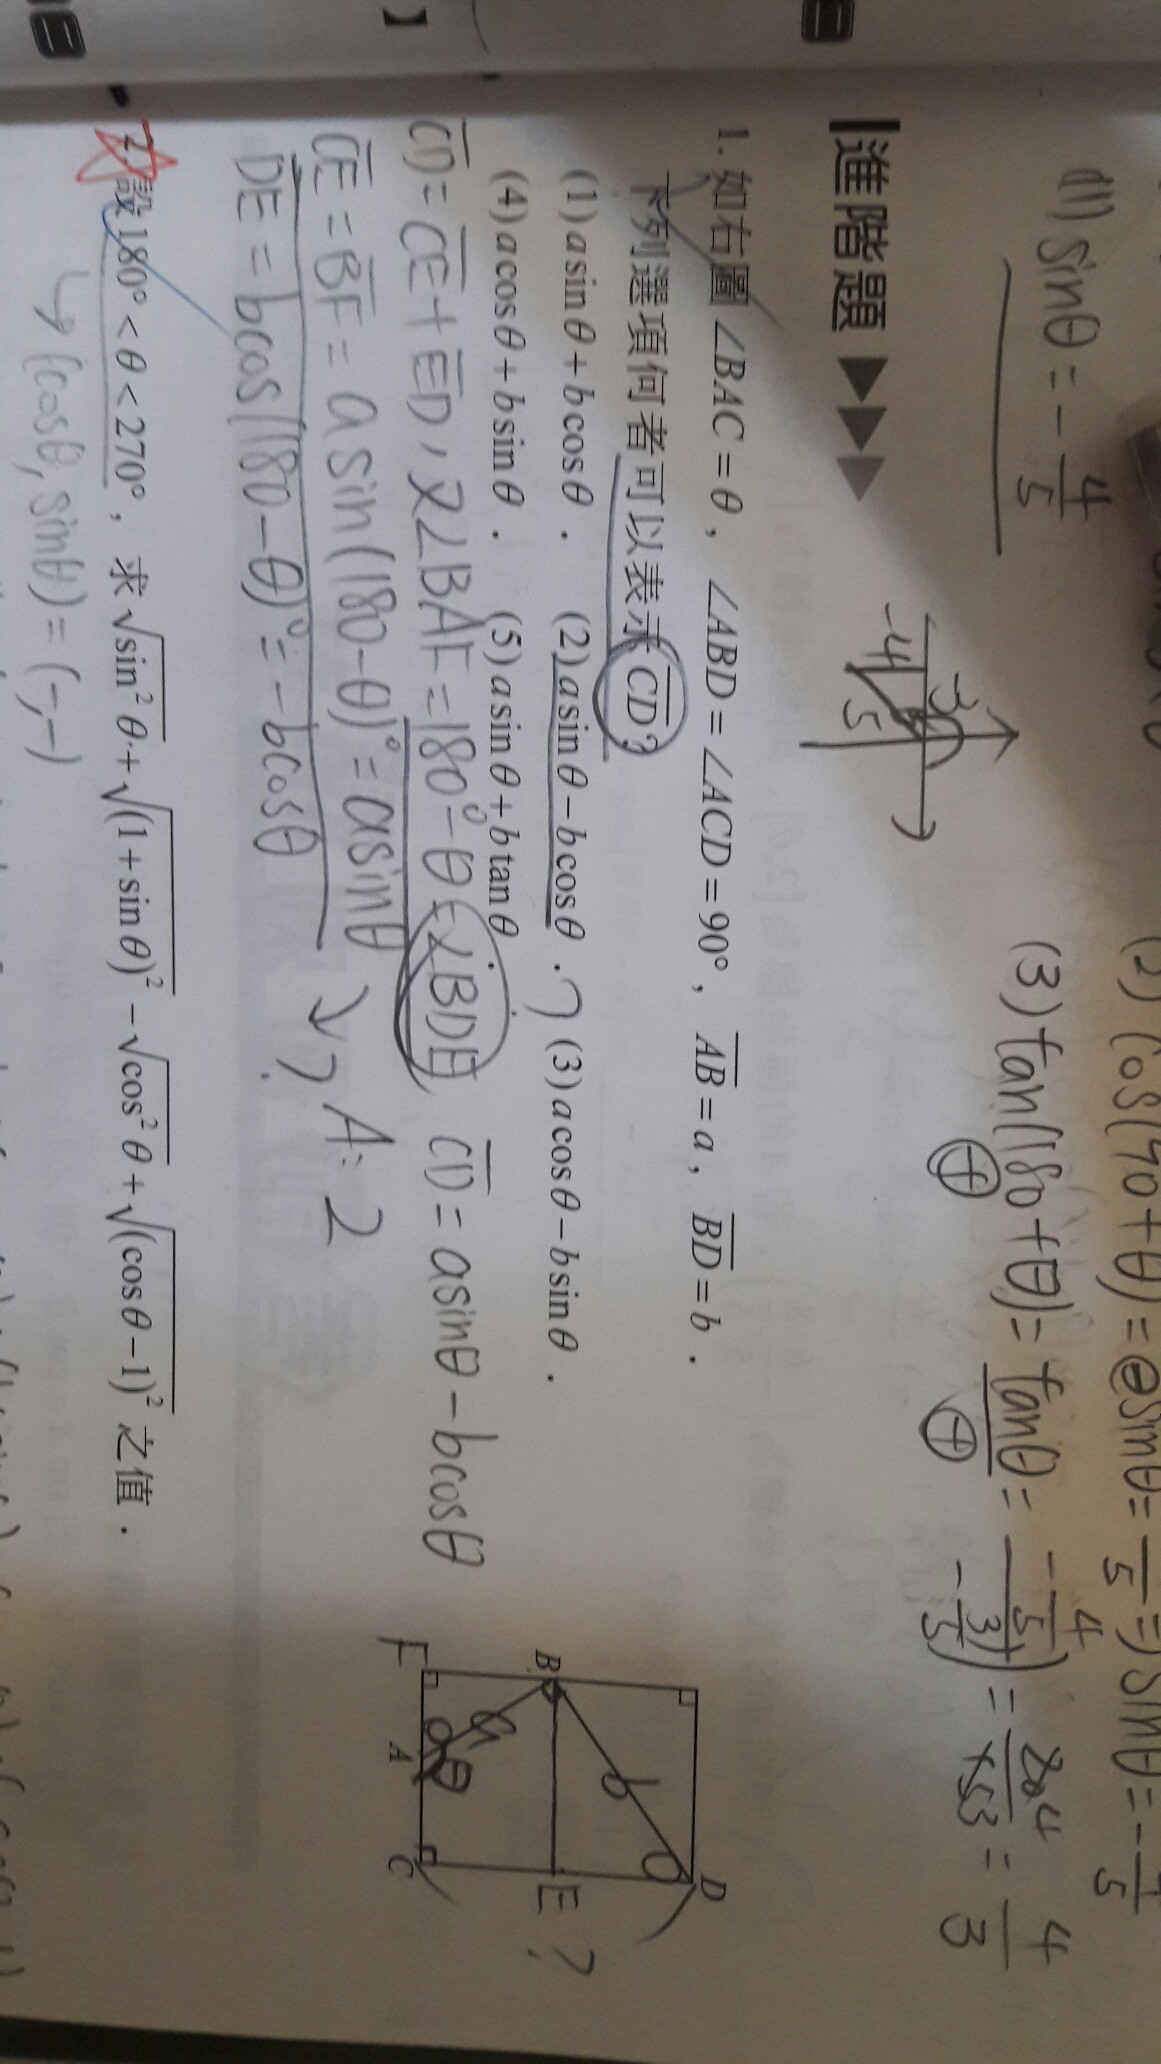 (1) sinθ = -4/5
-3
-4
5
(2) cos(90+θ) = ⊖sinθ = 4/5 ⇒ sinθ = -4/5
(3) tan(180+θ) = tanθ = (-4/5)/(-3/5) = 20/15 = 4/3
⊕ ⊕
進階題 ▶▶▶
1. 如右圖∠BAC=θ,∠ABD=∠ACD=90°,AB=a,BD=b.
下列選項何者可以表示CD?
(1)a sinθ+b cosθ. (2)a sinθ-b cosθ. (3)a cosθ-b sinθ.
(4)a cosθ+b sinθ. (5)a sinθ+b tanθ
CD=CE+ED,又∠BAF=180°-θ=∠BDE, CD=asinθ-bcosθ
CE=BF=asin(180-θ)°=asinθ
A:2
DE=bcos(180-θ)°=-bcosθ
D
b
B
E ?
a
θ
F
A
C
2. 設180°<θ<270°,求√sin²θ+√(1+sinθ)²-√cos²θ+√(cosθ-1)² 之值.
↳(cosθ, sinθ)=(-,-)